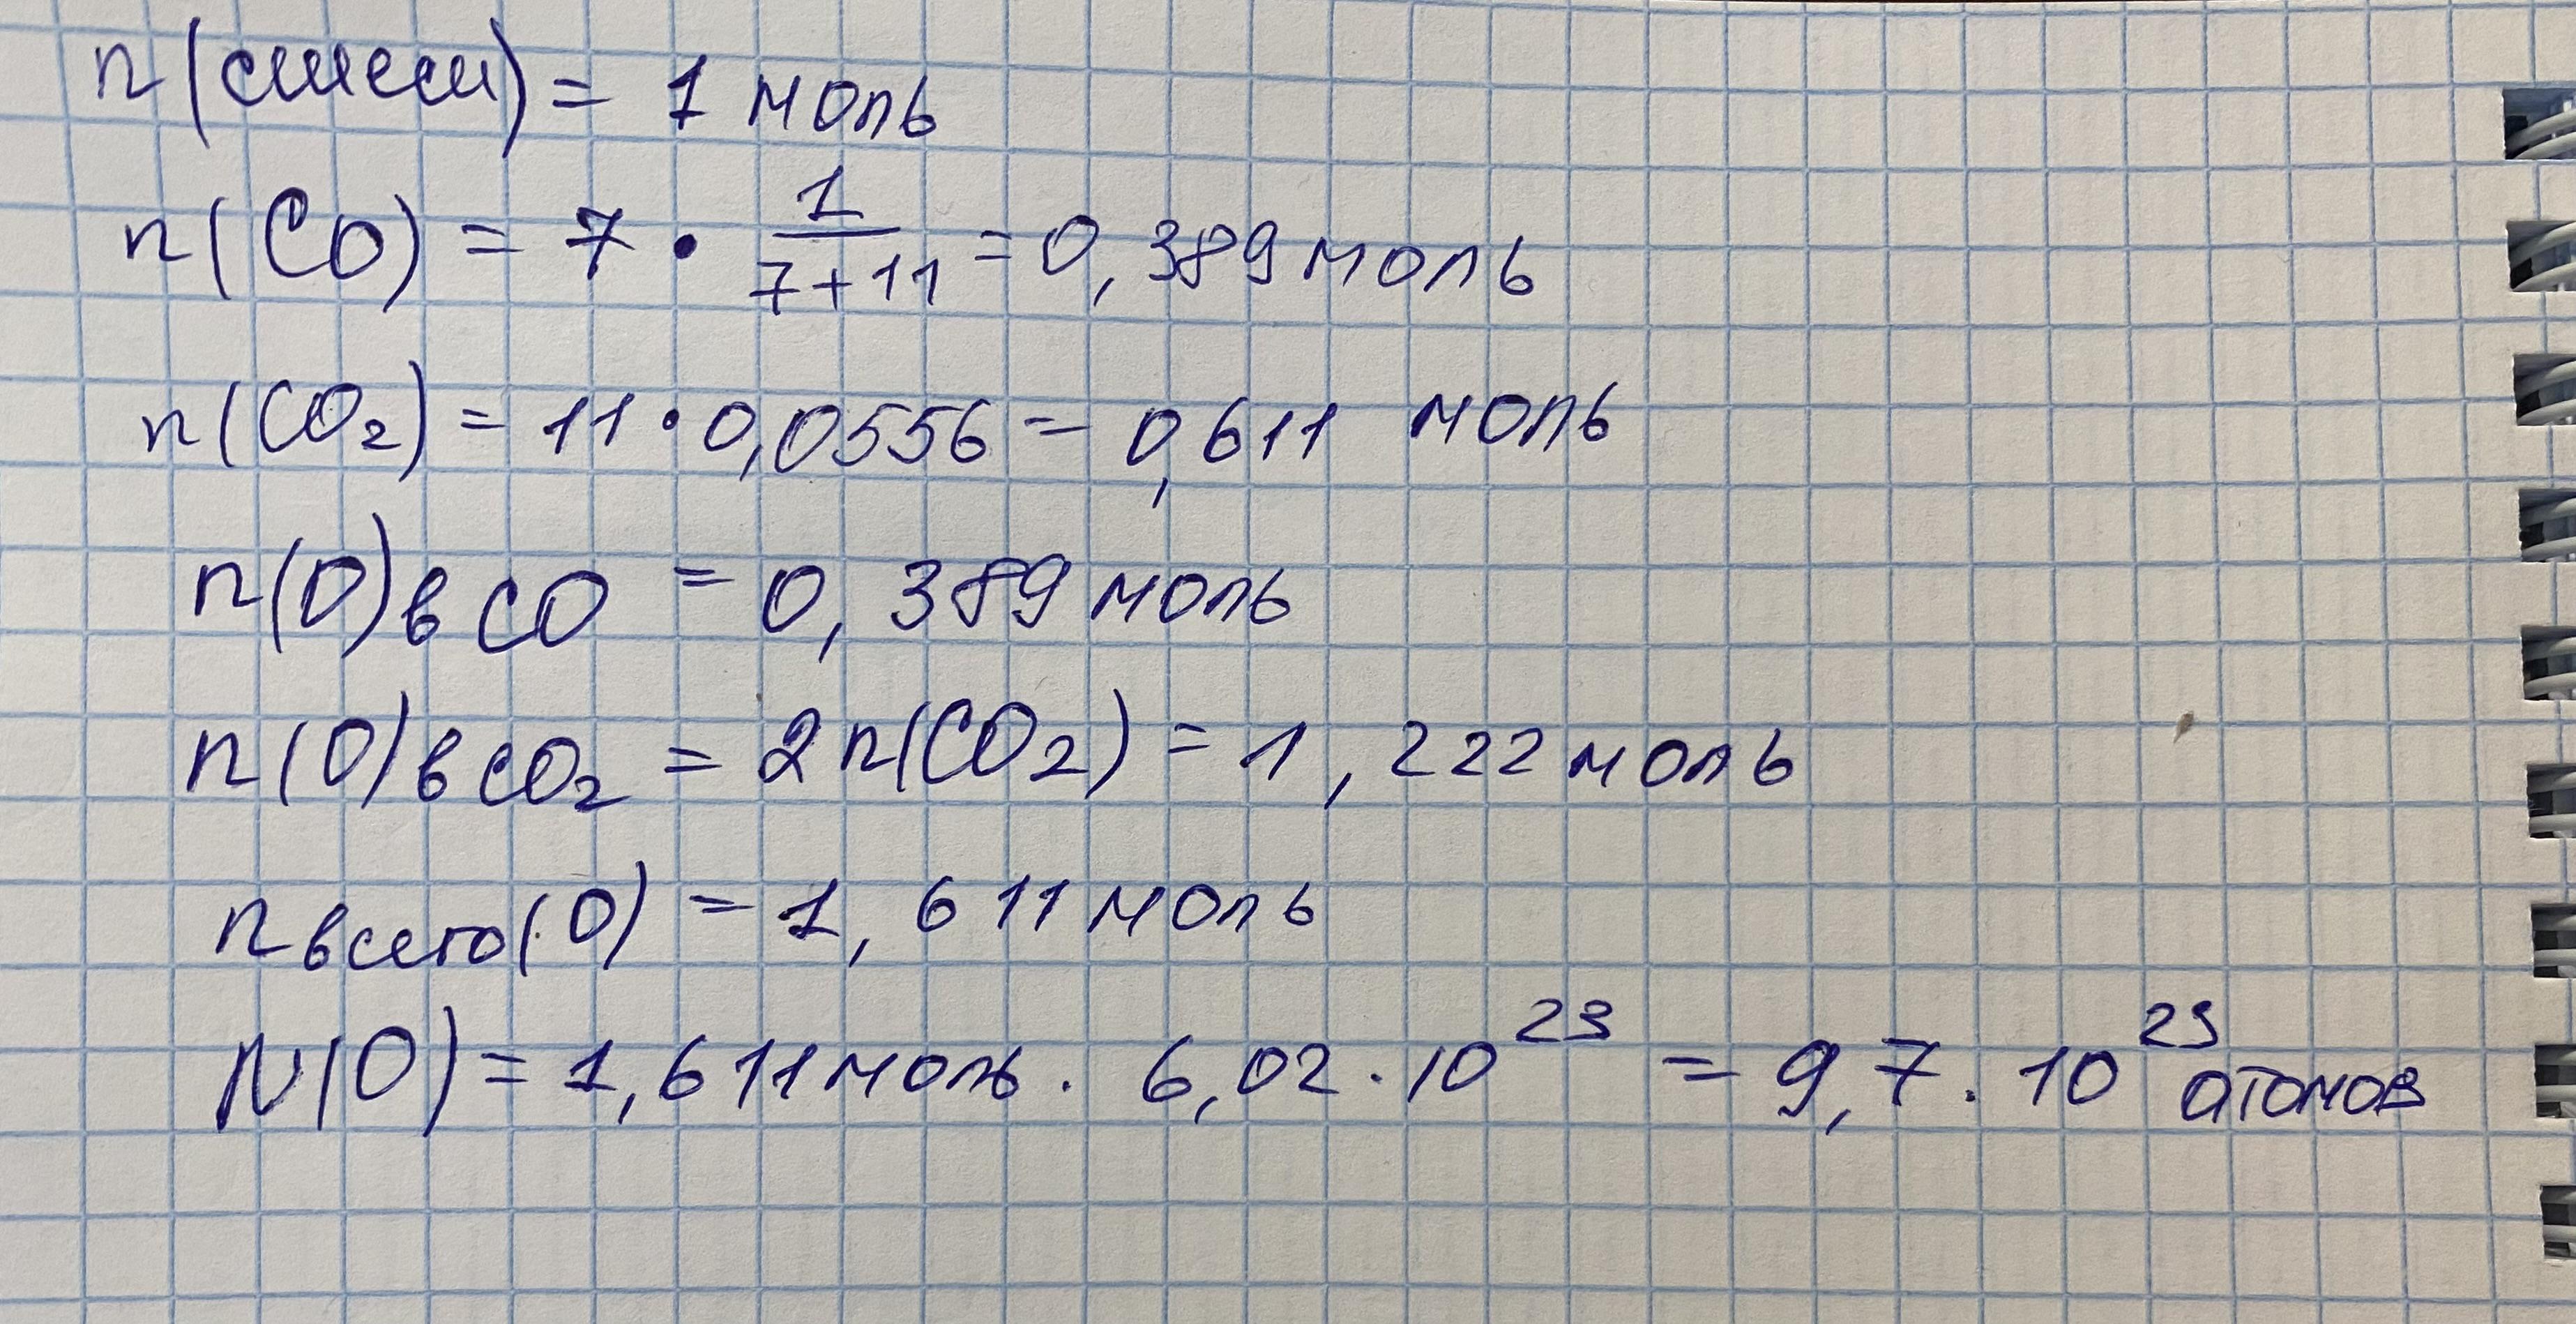 n(смеси) = 1 моль
n(CO) = 7 · 1/(7+11) = 0,389 моль
n(CO₂) = 11 · 0,0556 = 0,611 моль
n(O) в CO = 0,389 моль
n(O) в CO₂ = 2n(CO₂) = 1,222 моль
n всего(O) = 1,611 моль
N(O) = 1,611 моль · 6,02 · 10²³ = 9,7 · 10²³ атомов